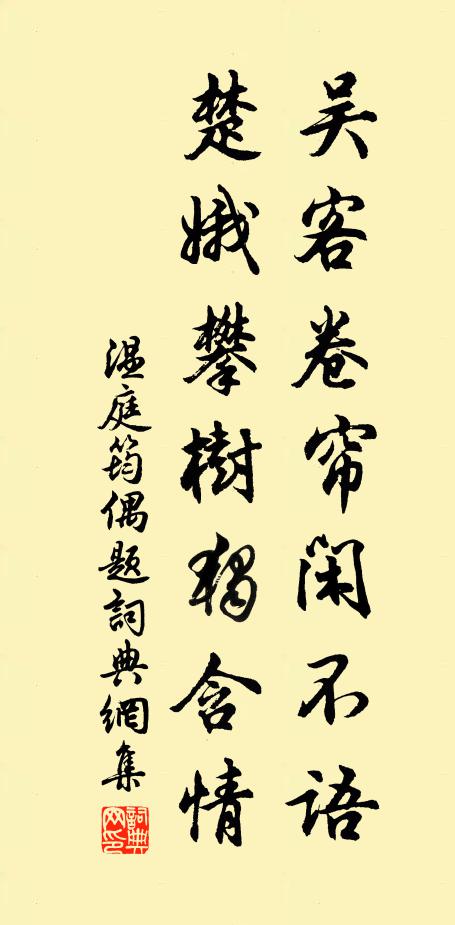 吴客卷帘闲不语
楚娥攀樹独含情
温庭筠偶题詞典網集
詞典网印